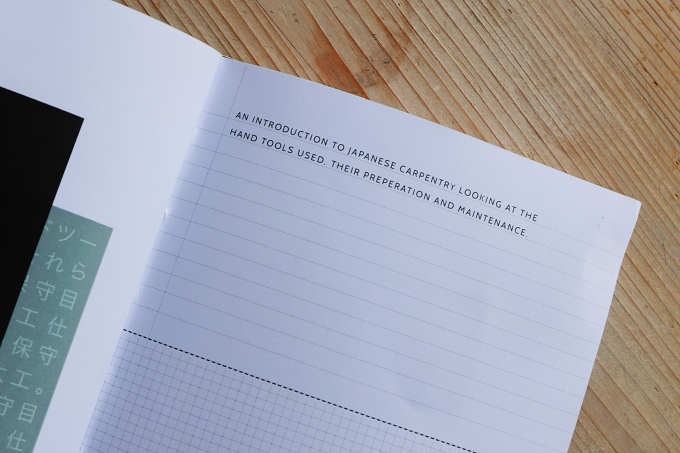 ツー
れら
守目
工 仕
保守
工。
守目
仕
AN INTRODUCTION TO JAPANESE CARPENTRY LOOKING AT THE
HAND TOOLS USED, THEIR PREPERATION AND MAINTENANCE.